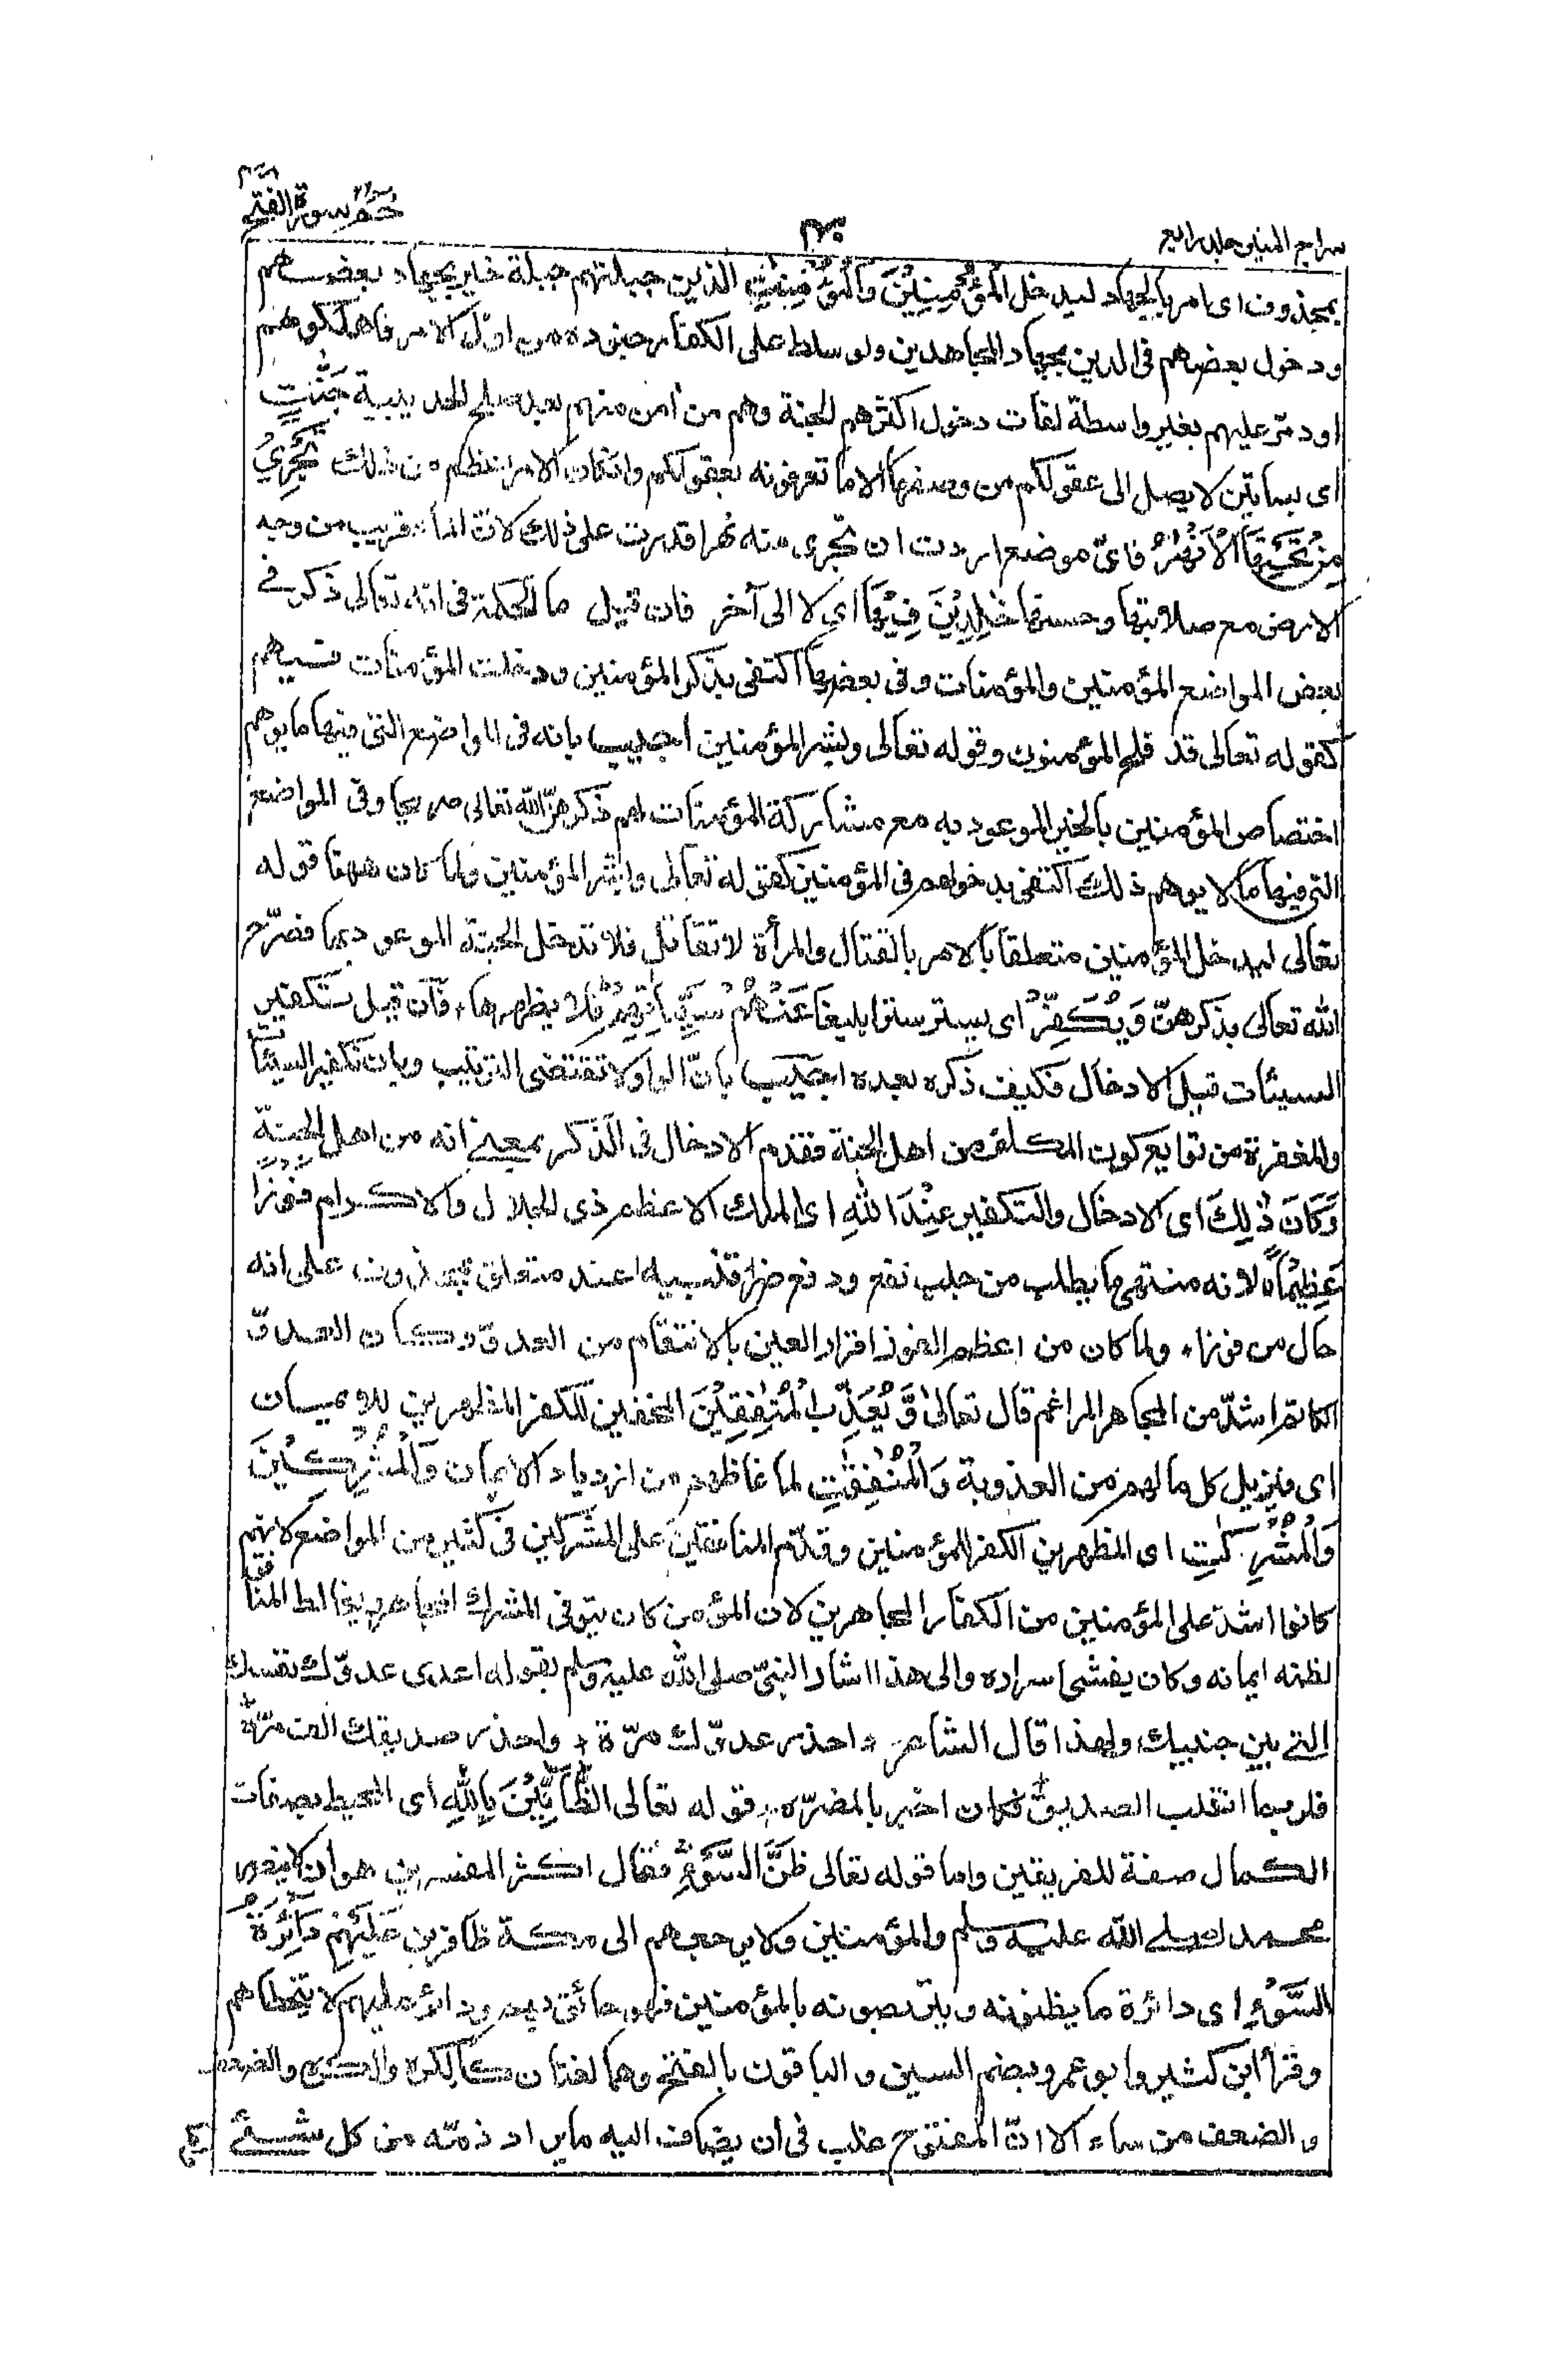 سراج المنير جلد رابع
٤٠
حٰمٓ سورة الفتح
بمحذوف اى امر بالجهاد ليدخل الْمُؤْمِنِيْنَ وَالْمُؤْمِنٰتِ الذين جبلتهم جبلة خير بجهاد بعضهم
ودخول بعضهم فى الدين بجهاد المجاهدين ولو سلط على الكفار جنوده من اوّل الامر فاهلكوهم
او دمّر عليهم بغير واسطة لفات دخول اكثرهم الجنة وهم من اٰمن منهم بعد صلح الحديبية جَنّٰتٍ
اى بساتين لا يصل الى عقولكم من وصفها الا ما تعرفونه بعقولكم وان كان الامر اعظم من ذلك تَجْرِيْ
مِنْ تَحْتِهَا الْاَنْهٰرُ فاىّ موضع اردت ان تجرى منه نهرا قدرت على ذلك لانّ الماء قريب من وجه
الارض مع صلابتها وحسنها خٰلِدِيْنَ فِيْهَا اى لا الى آخر فان قيل ما الحكمة فى انه تعالى ذكر فى
بعض المواضع المؤمنين والمؤمنات وفى بعضها اكتفى بذكر المؤمنين ودخلت المؤمنات فيهم
كقوله تعالى قد افلح المؤمنون وقوله تعالى وبشر المؤمنين اجيب بانه فى المواضع التى فيها ما يوهم
اختصاص المؤمنين بالخير الموعود به مع مشاركة المؤمنات لهم ذكرهنّ الله تعالى صريحا وفى المواضع
التى فيها ما لا يوهم ذلك اكتفى بدخولهم فى المؤمنين كقوله تعالى وبشر المؤمنين ولما كان ههنا قوله
تعالى ليدخل المؤمنين متعلقا بالامر بالقتال والمرأة لا تقاتل فلا تدخل الجنة الموعود بها فصرّح
الله تعالى بذكرهنّ وَيُكَفِّرَ اى يستر سترا بليغا عَنْهُمْ سَيِّاٰتِهِمْ فلا يظهرها، فان قيل تكفير
السيئات قبل الادخال فكيف ذكره بعده اجيب بانّ الواو لا تقتضى الترتيب وبان تكفير السيئات
والمغفرة من توابع كون المكلف من اهل الجنة فقدم الادخال فى الذكر بمعنى انه من اهل الجنة
وَكَانَ ذٰلِكَ اى الادخال والتكفير عِنْدَ اللهِ اى الملك الاعظم ذى الجلال والاكرام فَوْزًا
عَظِيْمًا لانه منتهى ما يطلب من جلب نفع ودفع ضرّ تنبيه عند متعلق بمحذوف على انه
حال من فوزا، ولما كان من اعظم الفوز اقرار العين بالانتقام من العدوّ وكان العدوّ
الكاتم اشدّ من المجاهر المراغم قال تعالى وَّيُعَذِّبَ الْمُنٰفِقِيْنَ المخفين للكفر المظهرين للايمان
اى فيزيل كل ما لهم من العذوبة وَالْمُنٰفِقٰتِ لما غاظهم من ازدياد الايمان وَالْمُشْرِكِيْنَ
وَالْمُشْرِكٰتِ اى المظهرين الكفر للمؤمنين وقدّم المنافقين على المشركين فى كثير من المواضع لانهم
كانوا اشدّ على المؤمنين من الكفار المجاهرين لان المؤمن كان يتوقى المشرك المجاهر ويخالط المنافق
لظنه ايمانه وكان يفشى اسراره والى هذا اشار النبىّ صلى الله عليه وسلم بقوله اعدى عدوّك نفسك
التى بين جنبيك، ولهذا قال الشاعر ، احذر عدوّك مرّة ، واحذر صديقك الف مرّة
فلربما انقلب الصديق فكان اخبر بالمضرّه، قوله تعالى الظَّآنِّيْنَ بِاللهِ اى المحيط بصفات
الكمال صفة للفريقين واما قوله تعالى ظَنَّ السَّوْءِ فقال اكثر المفسرين هو ان لا ينصر
محمدا صلى الله عليه وسلم والمؤمنين ولا يرجعهم الى مكة ظافرين عَلَيْهِمْ دَآئِرَةُ
السَّوْءِ اى دائرة ما يظنونه ويتربصونه بالمؤمنين فهو حائق بهم ودائر عليهم لا يتخطاهم
وقرأ ابن كثير وابو عمرو بضم السين والباقون بالفتح وهما لغتان كالكره والكره والضعف
والضعف من ساء الا انّ المفتوح غلب فى ان يضاف اليه ما يراد ذمّه من كل شىء